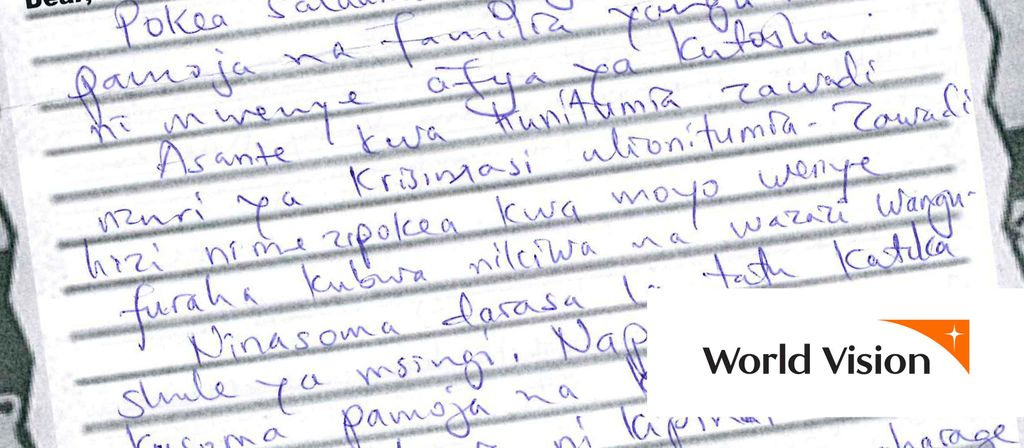 Dear,
Pokea
pamoja na familia yangu
ni mwenye afya ya kutosha
Asante kwa kunitumia zawadi
nzuri ya Krisimasi ulionitumia - Zawadi
hizi nimezipokea kwa moyo wenye
furaha kubwa nikiwa na wazazi wangu-
Ninasoma darasa la katika
shule ya msingi.
kusoma pamoja na
ni
harage
World Vision